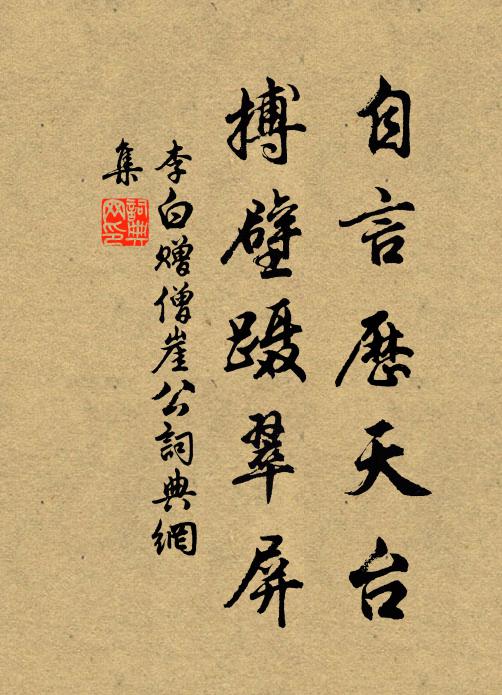 自言歷天台
搏壁蹑翠屏
李白赠僧崖公詞典網
集
詞典網印